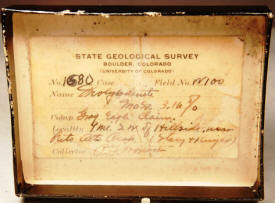 STATE GEOLOGICAL SURVEY
BOULDER, COLORADO
(UNIVERSITY OF COLORADO)
No. 1680 Case Field No. W100
Name Molybdenite
3.16%
Comp. Gray Eagle Claim
Locality 4 mi. S.W. of Hillside, near
Collector